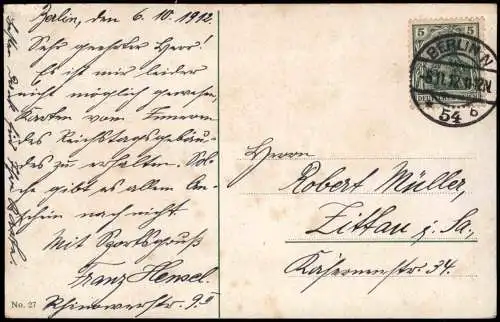 Berlin, den 6. 10. 1912.
Sehr geehrter Herr!
Es ist mir leider
nicht möglich gewesen,
Karten vom Innern
des Reichstagsgebäu-
des zu erhalten. Sol-
che gibt es allem An-
schein nach nicht.
Mit Sportsgruß
Franz Hensel.
Rhinowerstr. 9.II
No. 27
5 5
BERLIN N
54
Herrn
Robert Müller,
Zittau i. Sa,
Kasernenstr. 34.